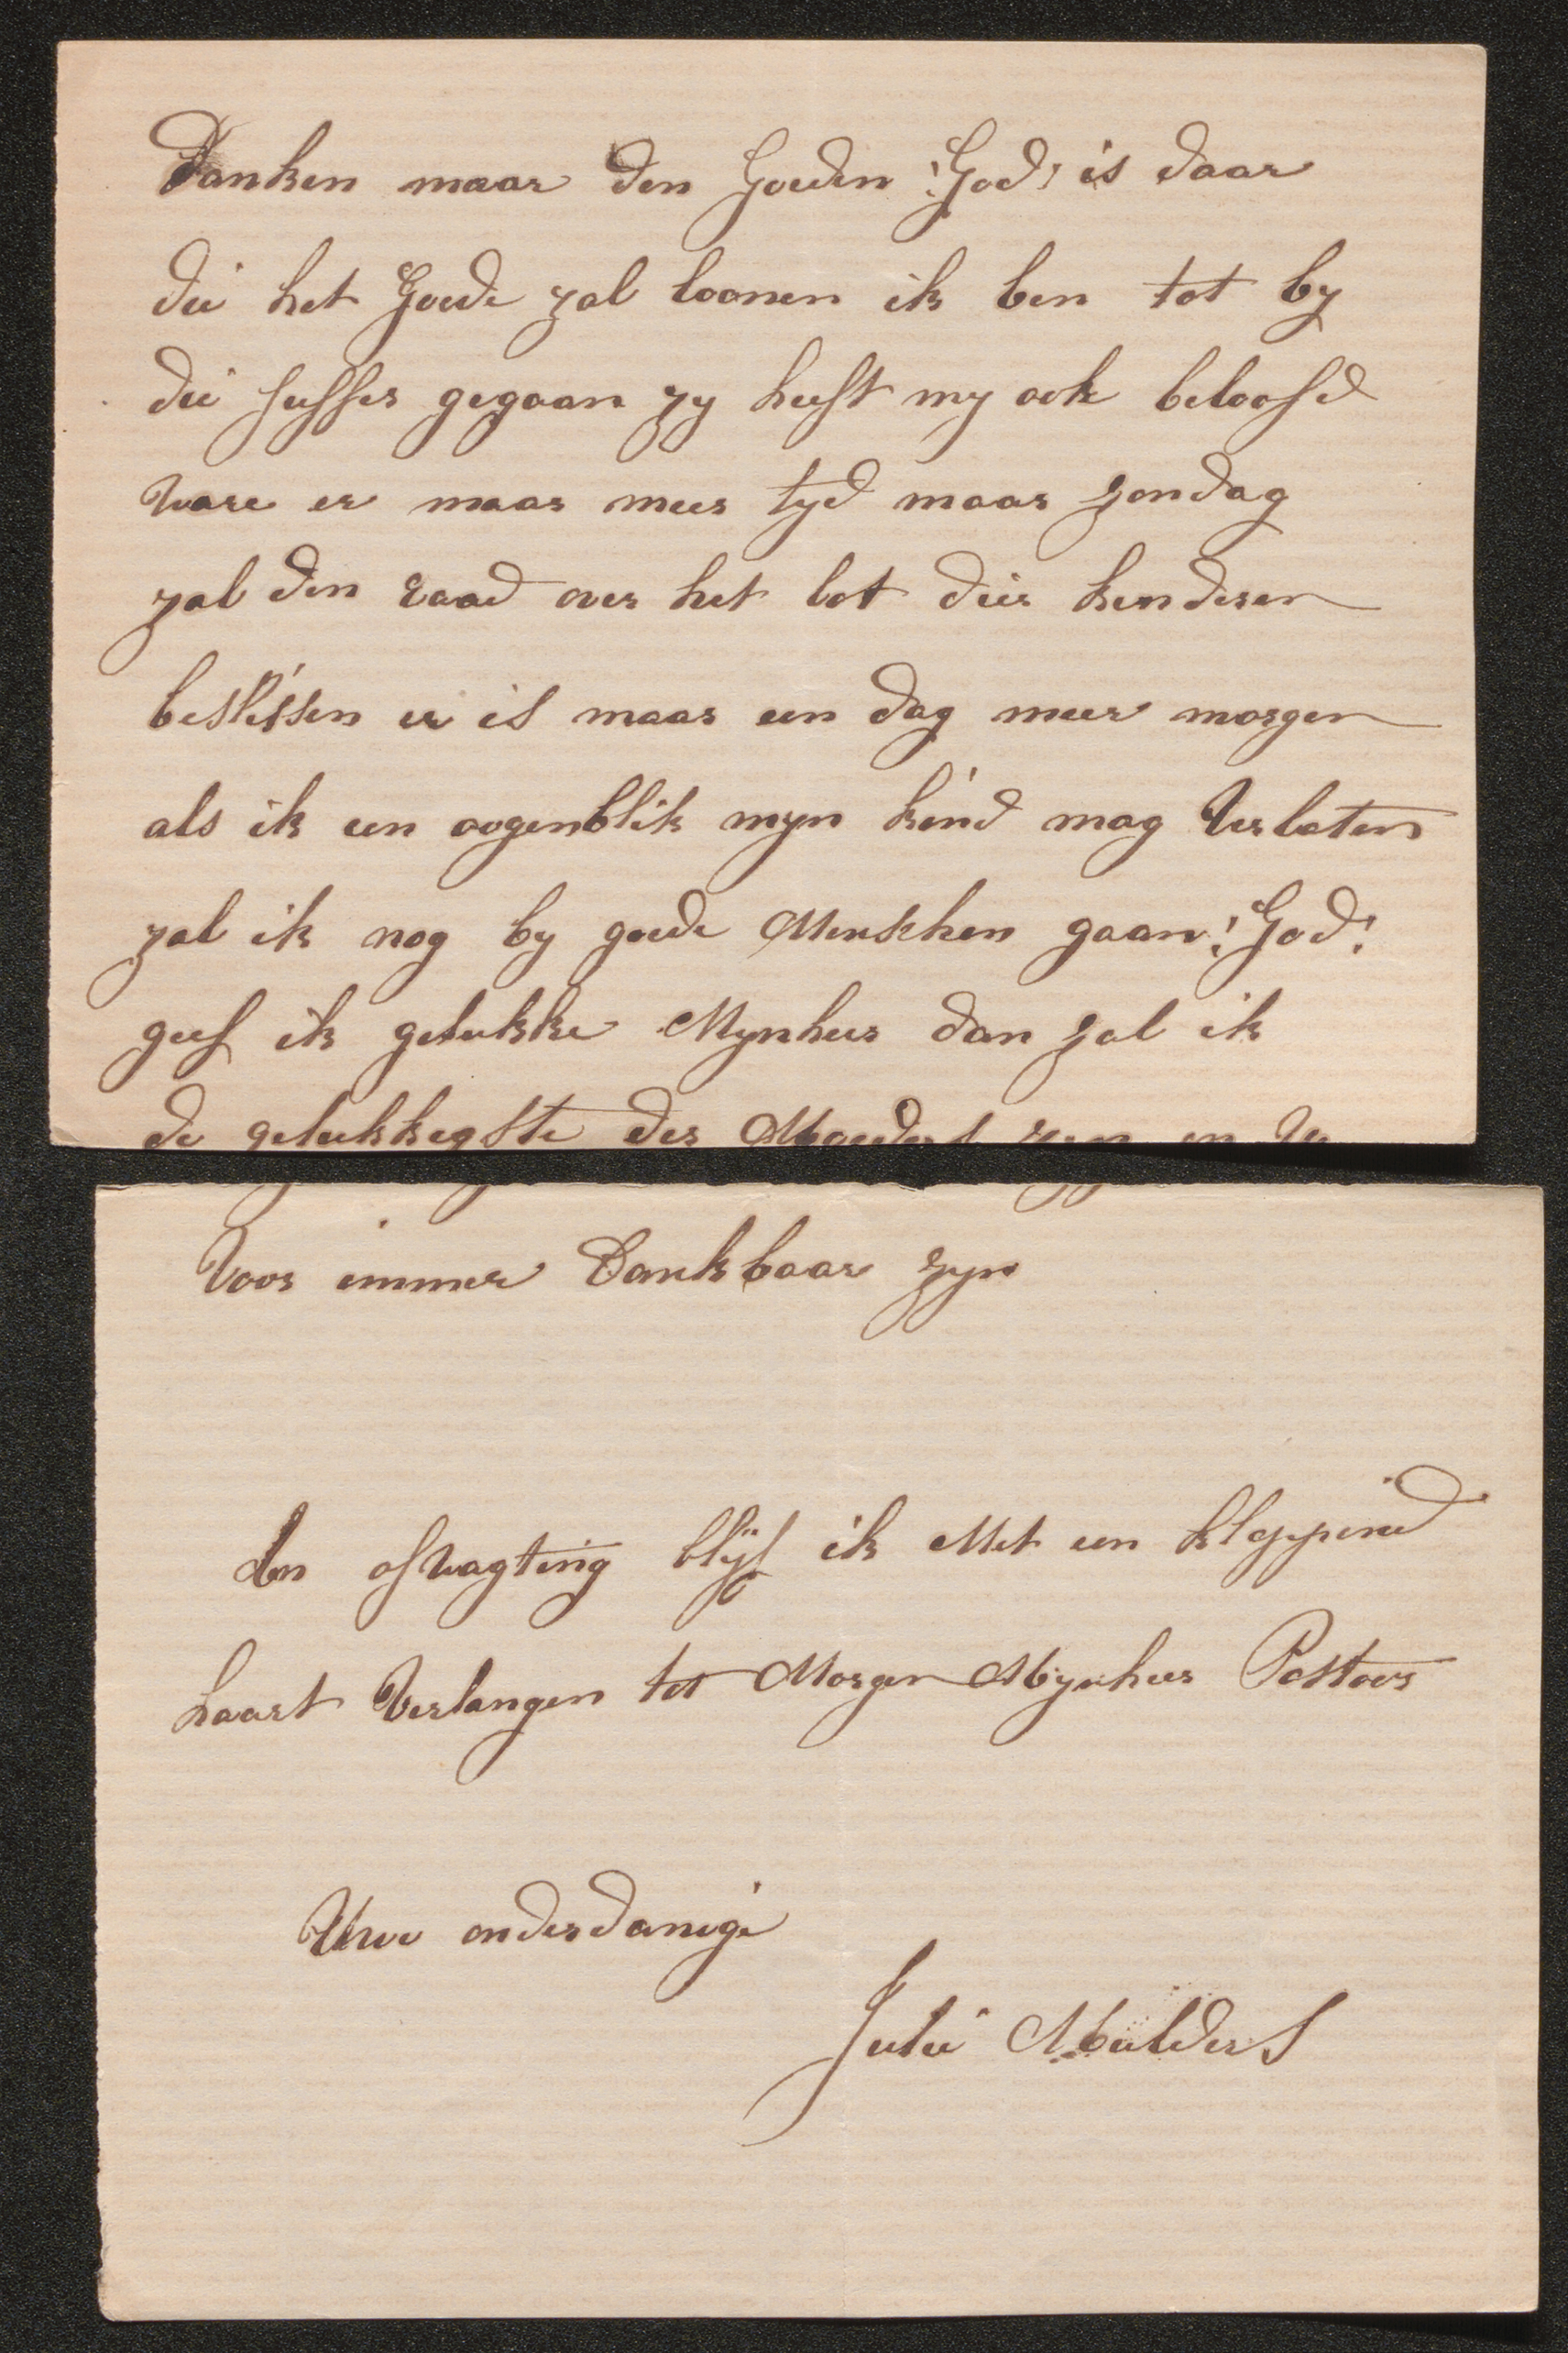 Danken maar den Goeden !God! is daar
die het Goede zal loonen ik ben tot by
die juffer gegaan zy heeft my ook beloofd
ware er maar meer tyd maar zondag
zal den raad over het lot dier kenderen
beslissen er is maar een dag meer morgen
als ik een oogenblik myn kind mag Verlaten
zal ik nog by goede Menschen gaan !God!
geef ik gelukke Mynheer dan zal ik
de gelukkegste der Moeders zyn en U
Voor immer Dankbaar zyn
In afwagting blijf ik Met een kloppend
haart Verlangen tot Morgen Mynheer Pastoor
Uwe onderdanige
Julie Mulders